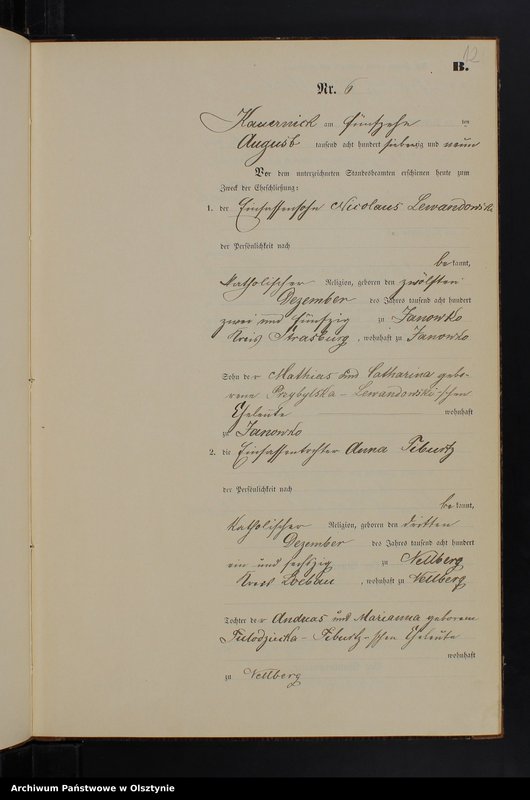 12
B.
Nr. 6
Kauernick am fünfzehn ten
August tausend acht hundert siebenzig und neun
Vor dem unterzeichneten Standesbeamten erschienen heute zum
Zweck der Eheschließung:
1. der Einsassensohn Nicolaus Lewandowski
der Persönlichkeit nach
be kannt,
katholischer Religion, geboren den zwölften
Dezember des Jahres tausend acht hundert
zwei und fünfzig zu Janowko
Kreis Strasburg, wohnhaft zu Janowko
Sohn der Mathias und Catharina gebo-
rene Przybylska - Lewandowski-schen
Eheleute wohnhaft
zu Janowko
2. die Einsassentochter Anna Teburtz
der Persönlichkeit nach
be kannt,
katholischer Religion, geboren den dritten
Dezember des Jahres tausend acht hundert
ein und sechzig zu Nellberg
Kreis Loebau, wohnhaft zu Nellberg
Tochter der Andreas und Marianna geborene
Teburtz-schen Eheleute
wohnhaft
zu Nellberg
Archiwum Państwowe w Olsztynie